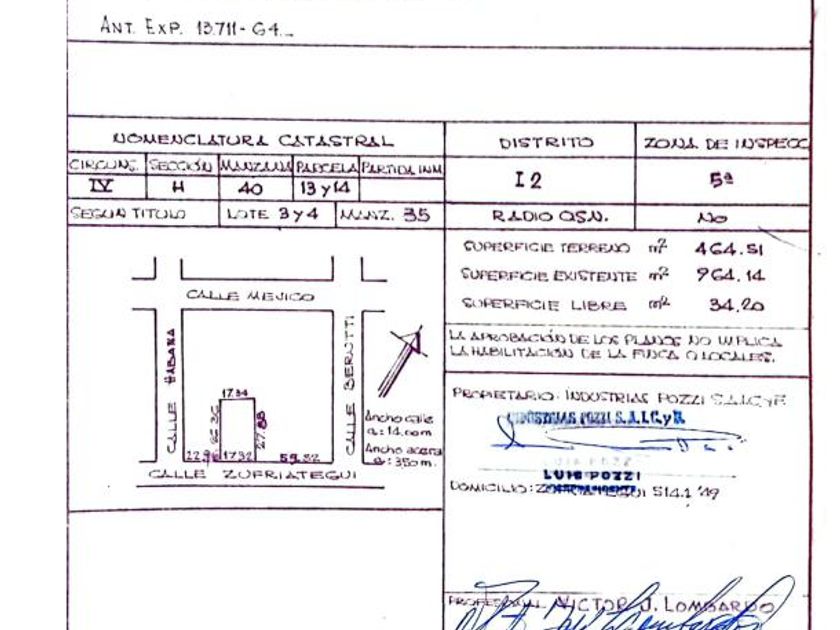 ANT. EXP. 13.711-G4._
NOMENCLATURA CATASTRAL
DISTRITO
ZONA DE INSPECC
CIRCUNS. SECCIÓN MANZANA PARCELA PARTIDA INM.
IV H 40 13 y 14
I 2
5ª
SEGUN TITULO LOTE 3 y 4 MANZ. 35
RADIO OSN.
NO
SUPERFICIE TERRENO m² 464.51
SUPERFICIE EXISTENTE m² 964.14
SUPERFICIE LIBRE m² 34.20
LA APROBACIÓN DE LOS PLANOS NO IMPLICA
LA HABILITACIÓN DE LA FINCA O LOCALES.
CALLE MEJICO
CALLE HABANA
CALLE BERUTTI
17.34
27.88
17.32
Ancho calle
a: 14.00m
Ancho acera
a: 3.50m.
CALLE ZUFRIATEGUI
PROPIETARIO: INDUSTRIAS POZZI S.A.I.C.yF.
INDUSTRIAS POZZI S.A.I.C.y F.
LUIS POZZI
DOMICILIO: ZUFRIATEGUI
PROFESIONAL VICTOR J. LOMBARDO